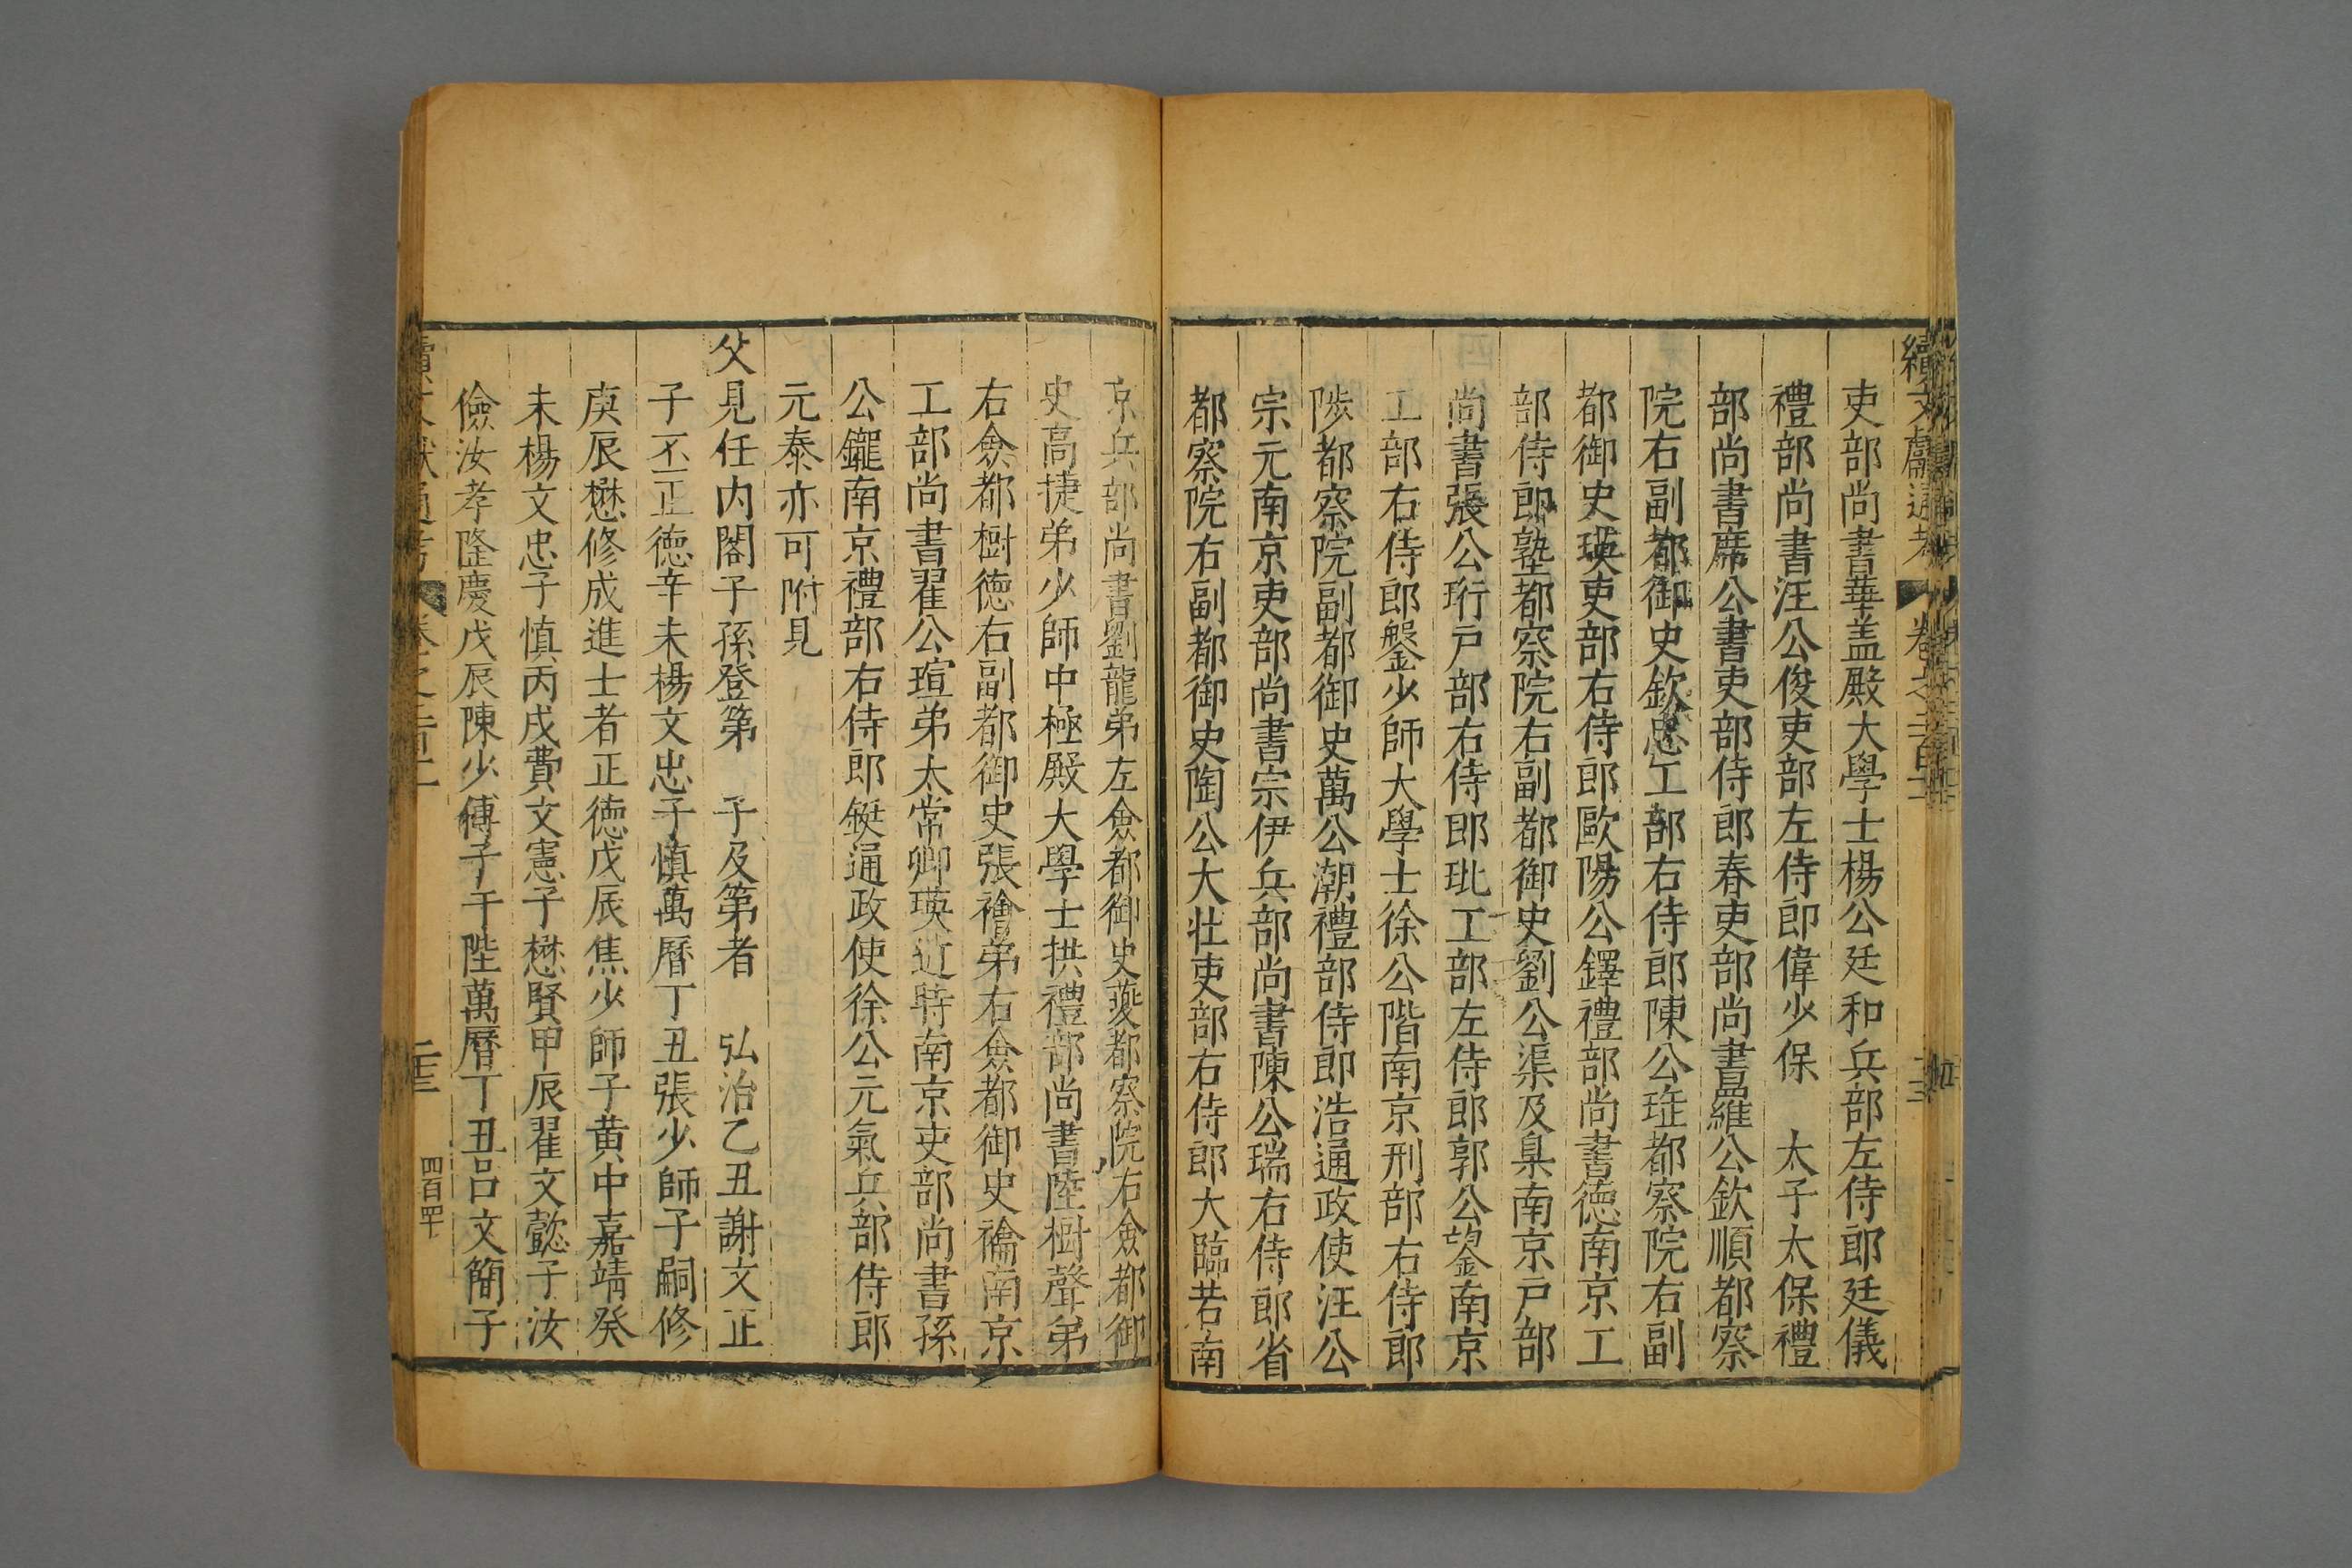 續文獻通考 卷之二百二
吏部尚書華盖殿大學士楊公廷和兵部左侍郎廷儀
禮部尚書汪公俊吏部左侍郎偉少保 太子太保禮
部尚書席公書吏部侍郎春吏部尚書羅公欽順都察
院右副都御史欽忠工部右侍郎陳公珏都察院右副
都御史瑛吏部右侍郎歐陽公鐸禮部尚書德南京工
部侍郎塾都察院右副都御史劉公渠及臬南京戶部
尚書張公珩戶部右侍郎玭工部左侍郎郭公鋆南京
工部右侍郎鋬少師大學士徐公階南京刑部右侍郎
陟都察院副都御史萬公潮禮部侍郎浩通政使汪公
宗元南京吏部尚書宗伊兵部尚書陳公瑞右侍郎省
都察院右副都御史陶公大壮吏部右侍郎大臨若南
京兵部尚書劉龍弟左僉都御史夔都察院右僉都御
史高捷弟少師中極殿大學士拱禮部尚書陸樹聲弟
右僉都樹德右副都御史張禬弟右僉都御史䄖南京
工部尚書翟公瑄弟太常卿瑛近時南京吏部尚書孫
公鑨南京禮部右侍郎鋌通政使徐公元氣兵部侍郎
元泰亦可附見
父見任内閣子孫登第 子及第者 弘治乙丑謝文正
子丕正德辛未楊文忠子慎萬曆丁丑張少師子嗣修
庚辰懋修成進士者正德戊辰焦少師子黄中嘉靖癸
未楊文忠子慎丙戌費文憲子懋賢甲辰翟文懿子汝
儉汝孝隆慶戊辰陳少傅子于陛萬曆丁丑吕文簡子
續文獻通考 卷之二百二 二十三 四百四十